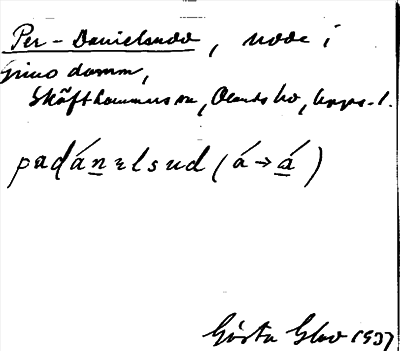 Per-Danielsudd, udde i
Gimo damm,
Skäfthammars sn, Olands hd, Upps. l.
padánεlsud (á → á)
Gösta 1937